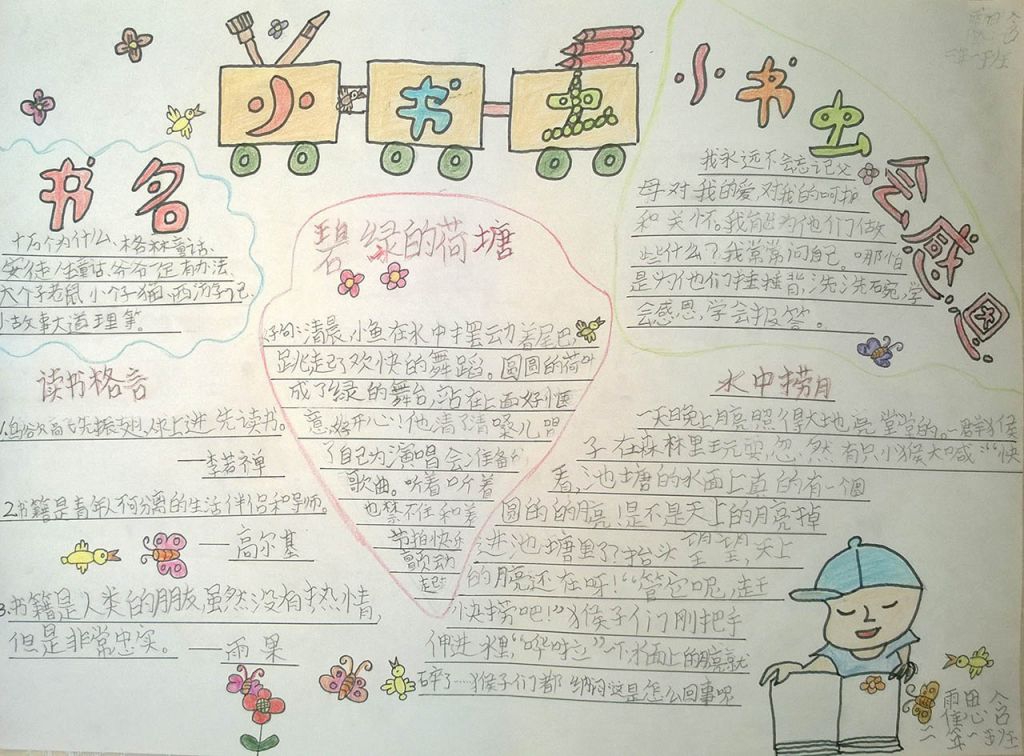 小书虫
书名
十万个为什么、格林童话、
安徒生童话、爷爷一定有办法、
大个子老鼠小个子猫、西游记、
小故事大道理等。
读书格言
1.鸟欲高飞先振翅,人求上进先读书。
——李若禅
2.书籍是青年人不可分离的生活伴侣和导师。
——高尔基
3.书籍是人类的朋友,虽然没有热情,
但是非常忠实。——雨果
碧绿的荷塘
好句:清晨,小鱼在水中摆动着尾巴,
跳起了欢快的舞蹈。圆圆的荷叶
成了绿的舞台,站在上面好惬
意,好开心!他清了清嗓儿唱
了自己为演唱会准备的
歌曲。听着听着
也禁不住和着
节拍快乐
颤动
起
小书虫
会感恩
我永远不会忘记父
母对我的爱,对我的呵护
和关怀。我能为他们做
些什么?我常常问自己。哪怕
是为他们捶捶背,洗洗碗,学
会感恩,学会报答。
水中捞月
一天晚上月亮照得大地亮堂堂的。一群猴
子在森林里玩耍,忽然有只小猴大喊:“快
看,池塘的水面上真的有一个圆
圆的的月亮!是不是天上的月亮掉
进池塘里了?抬头望望,天上
的月亮还在呀!“管它呢,赶
快捞吧!”猴子们刚把手
伸进水里,“哗啦”一下水面上的月亮就
碎了……猴子们都纳闷这是怎么回事呢